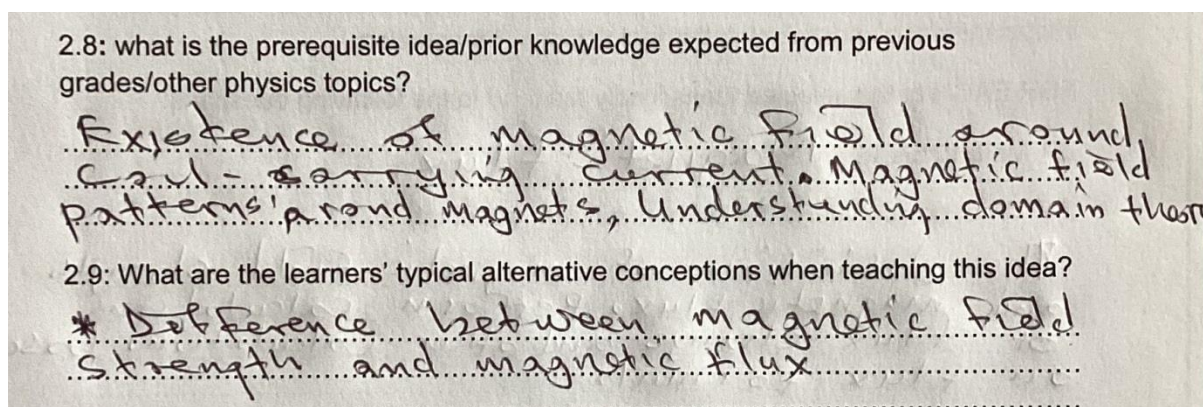 2.8: what is the prerequisite idea/prior knowledge expected from previous
grades/other physics topics?
Existence of magnetic field around
Coul-carrying current. Magnetic field
patterns arond magnets, Understanding domain theor
2.9: What are the learners' typical alternative conceptions when teaching this idea?
* Defference between magnetic field
strength and magnetic flux